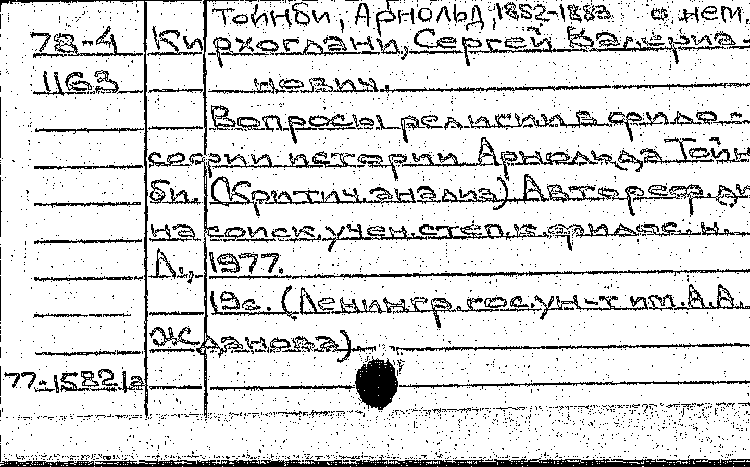 Тойнби, Арнольд, 1852-1883 о нем.
78-4 Кирхоглани, Сергей Валериа-
1163 нович.
Вопросы религии в фило-
софии истории Арнольда Тойн
би. (Критич. анализ) Автореф. ди
на соиск. учен. степ. к. филос. н.
Л., 1977.
19с. (Ленингр. гос. ун-т им. А.А.
Жданова).
77-15821а